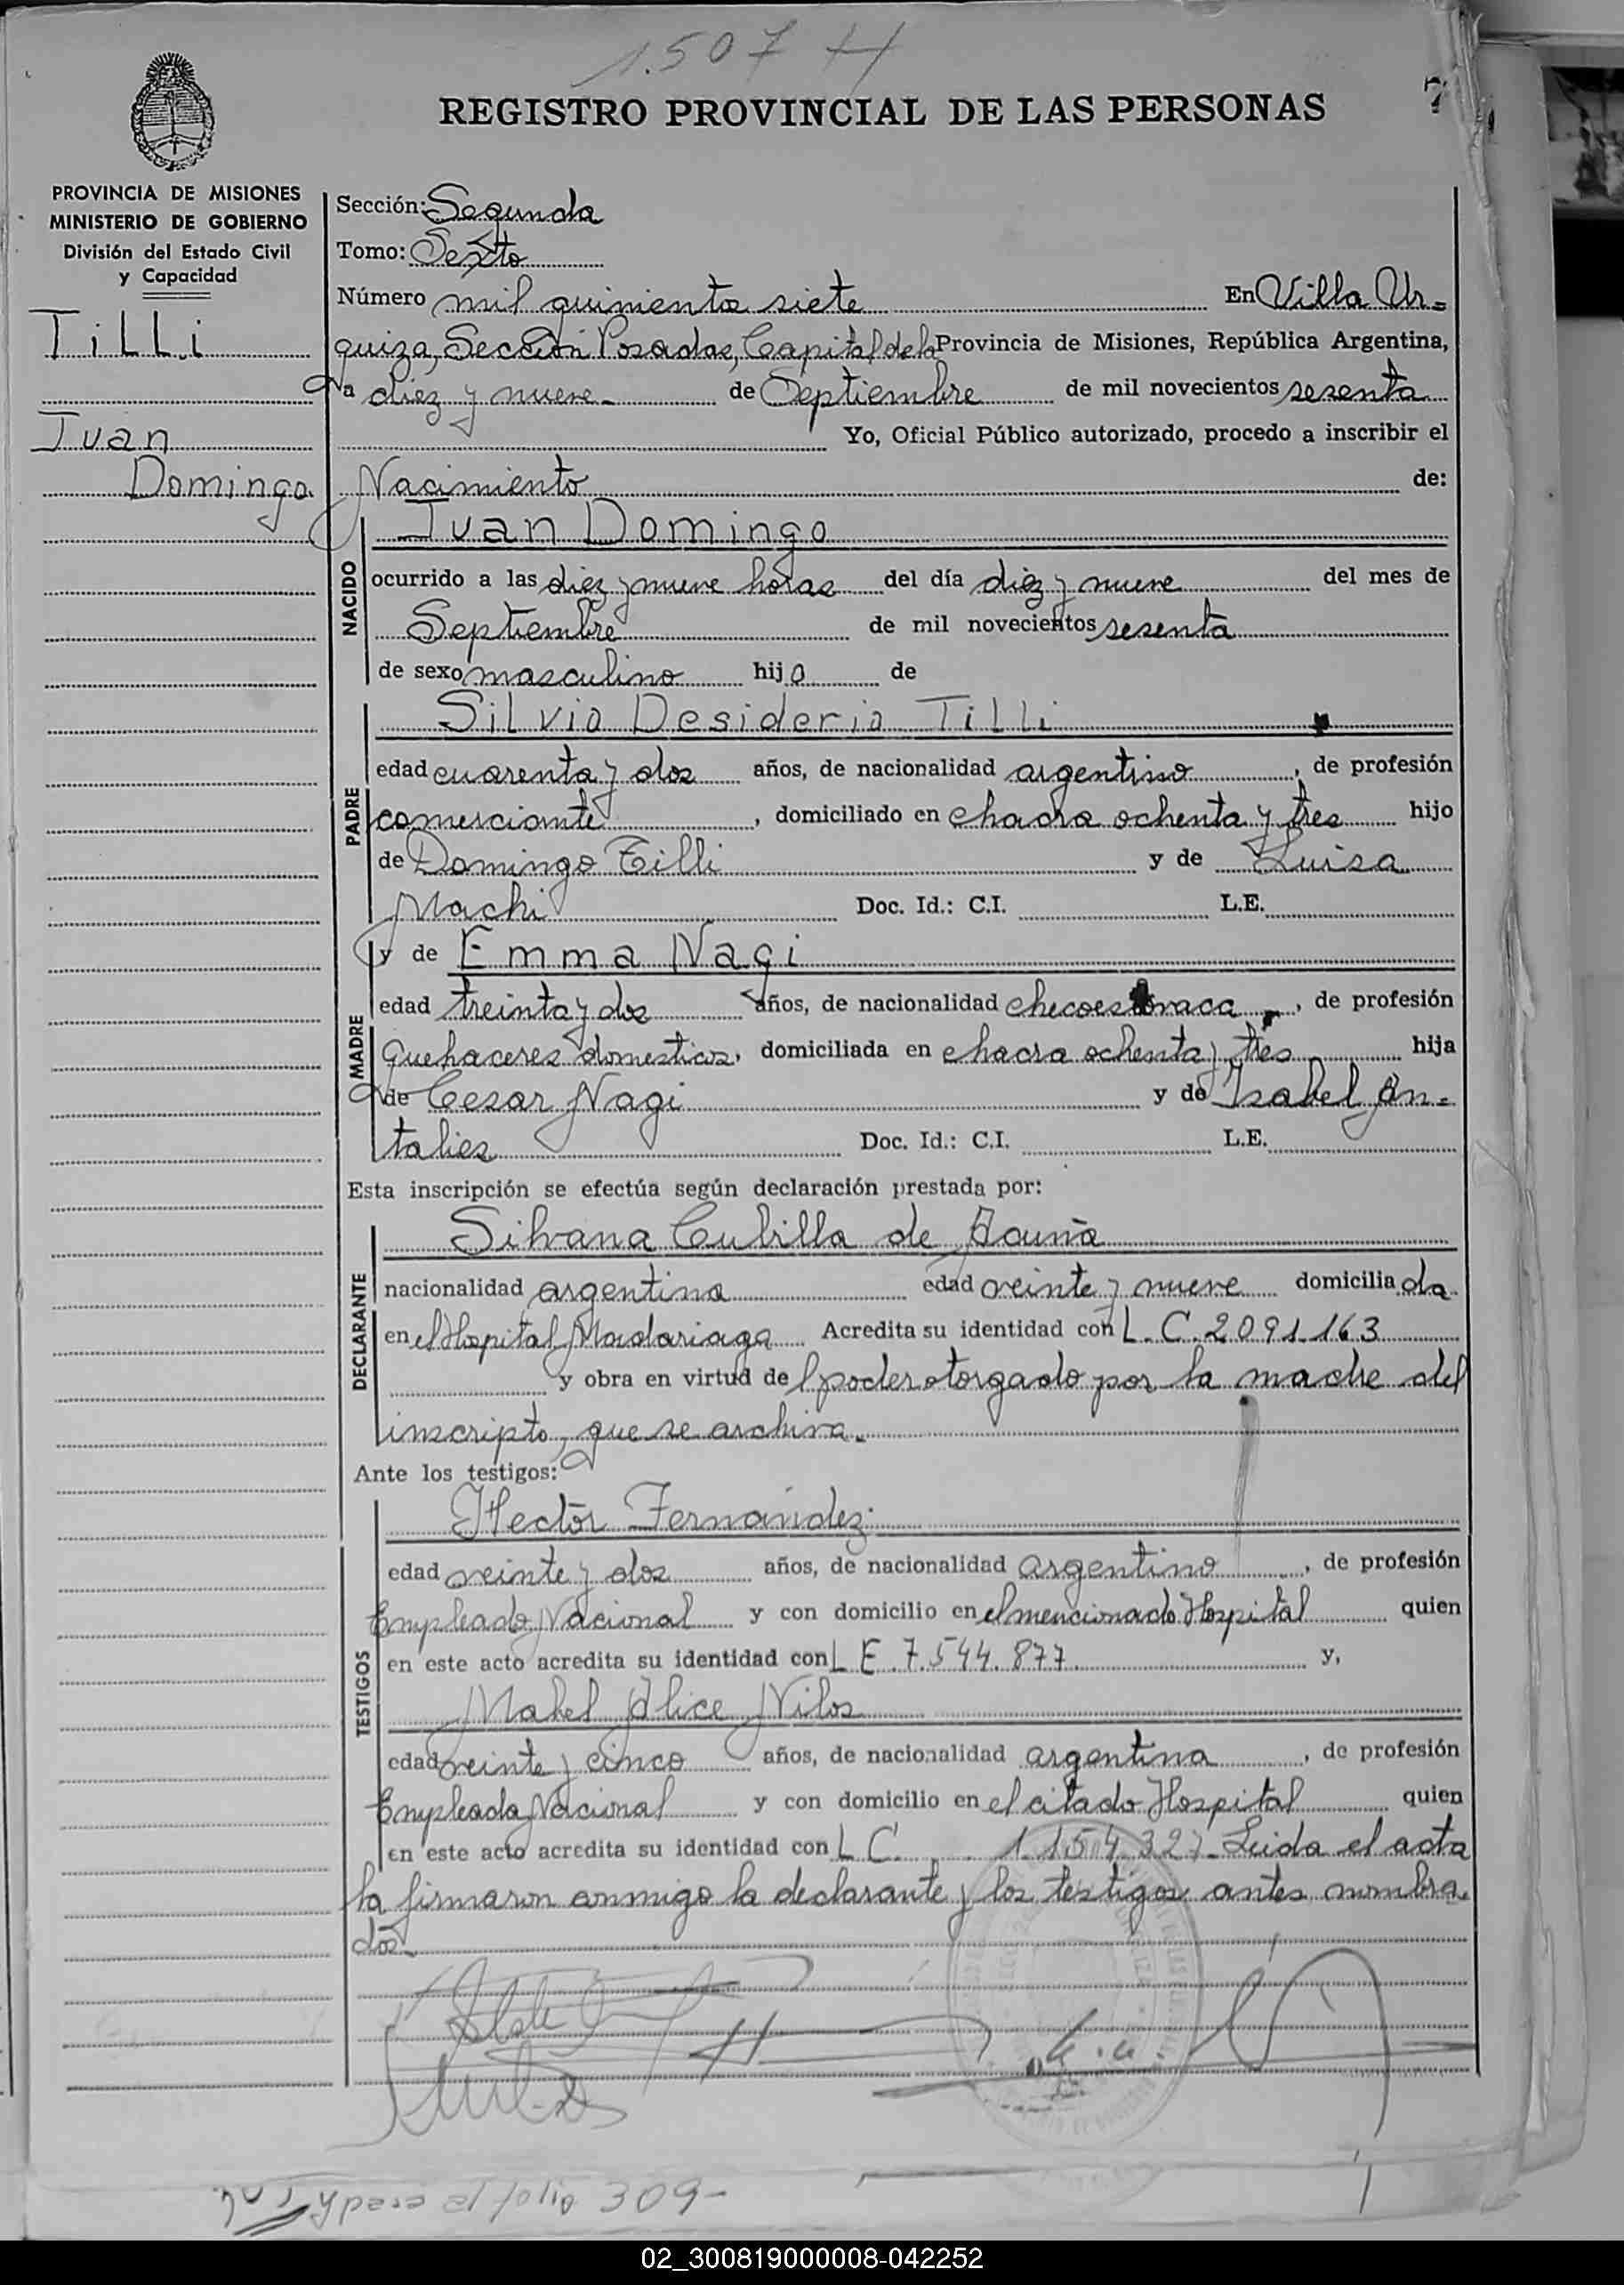 1.507 H
REGISTRO PROVINCIAL DE LAS PERSONAS
PROVINCIA DE MISIONES
MINISTERIO DE GOBIERNO
División del Estado Civil
y Capacidad
Tilli
Ivan
Domingo
Sección: Segunda
Tomo: Sexto
Número mil quinientos siete En Villa Ur-
quiza, Sección Posadas, Capital de la Provincia de Misiones, República Argentina,
a diez y nueve- de Septiembre de mil novecientos sesenta
Yo, Oficial Público autorizado, procedo a inscribir el
Nacimiento de:
NACIDO
Ivan Domingo
ocurrido a las diez y nueve horas del día diez y nueve del mes de
Septiembre de mil novecientos sesenta
de sexo masculino hijo de
PADRE
Silvio Desiderio Tilli
edad cuarenta y dos años, de nacionalidad argentino, de profesión
comerciante, domiciliado en chacra ochenta y tres hijo
de Domingo Tilli y de Luisa
Machi Doc. Id.: C.I. L.E.
MADRE
y de Emma Nagi
edad treinta y dos años, de nacionalidad checoeslovaca, de profesión
Quehaceres domesticos, domiciliada en chacra ochenta y tres hija
de Cesar Nagi y de Isabel An-
talies Doc. Id.: C.I. L.E.
Esta inscripción se efectúa según declaración prestada por:
DECLARANTE
Silvana Cubilla de Acuña
nacionalidad argentina edad veinte y nueve domiciliada
en el Hospital Madariaga Acredita su identidad con L.C. 2.091.163
y obra en virtud del poder otorgado por la madre del
inscripto, que se archiva.
Ante los testigos:
TESTIGOS
Hector Fernández
edad veinte y dos años, de nacionalidad argentino, de profesión
Empleado Nacional y con domicilio en el mencionado Hospital quien
en este acto acredita su identidad con L E. 7.544.877 y,
Mabel Alice Nilos
edad veinte y cinco años, de nacionalidad argentina, de profesión
Empleada Nacional y con domicilio en el citado Hospital quien
en este acto acredita su identidad con L C. 1.154.327- Leida el acta
la firmaron conmigo la declarante y los testigos antes nombra-
dos-
al folio 309-
02_300819000008-042252